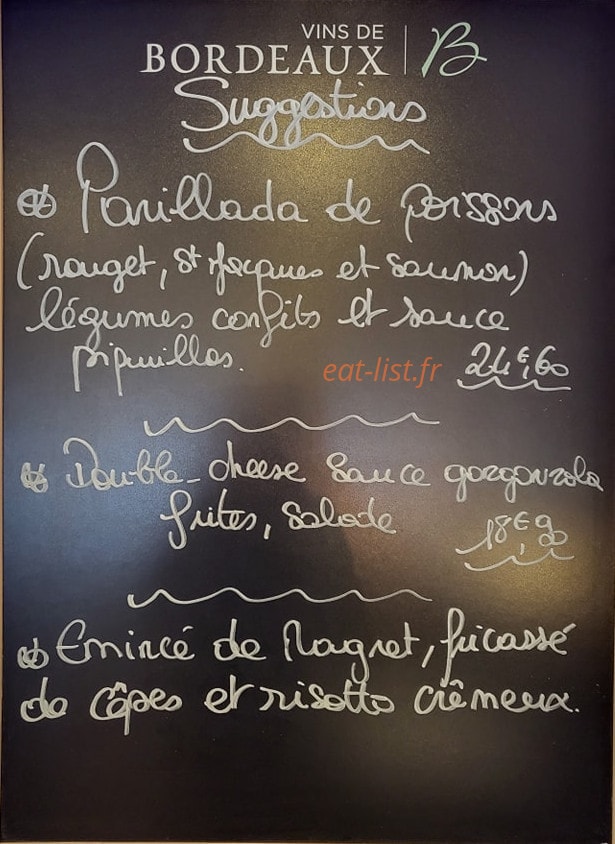 VINS DE
BORDEAUX B
Suggestions
Parillada de poissons
(rouget, St Jacques et saumon)
légumes confits et sauce
piquillos.
eat-list.fr 24€,60
Double-cheese sauce gorgonzola
frites, salade
18€,90
Emincé de Magret, fricassé
de cêpes et risotto crêmeux.